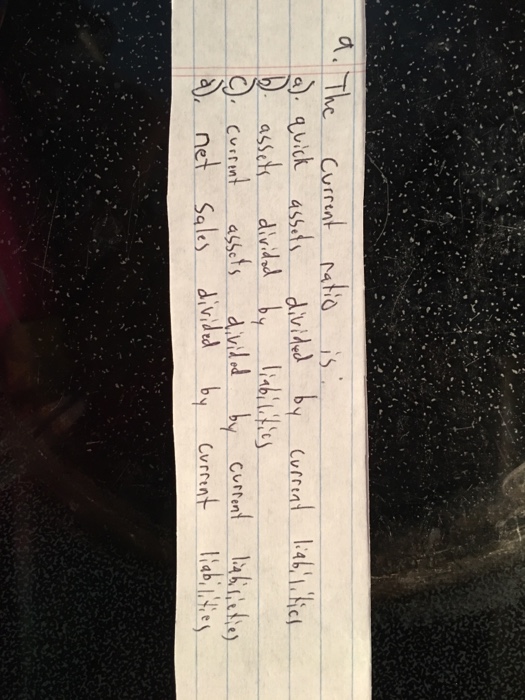 9. The current ratio is:
a). quick assets divided by current liabilities
b). assets divided by liabilities
c). current assets divided by current liabilieties
d). net sales divided by current liabilities